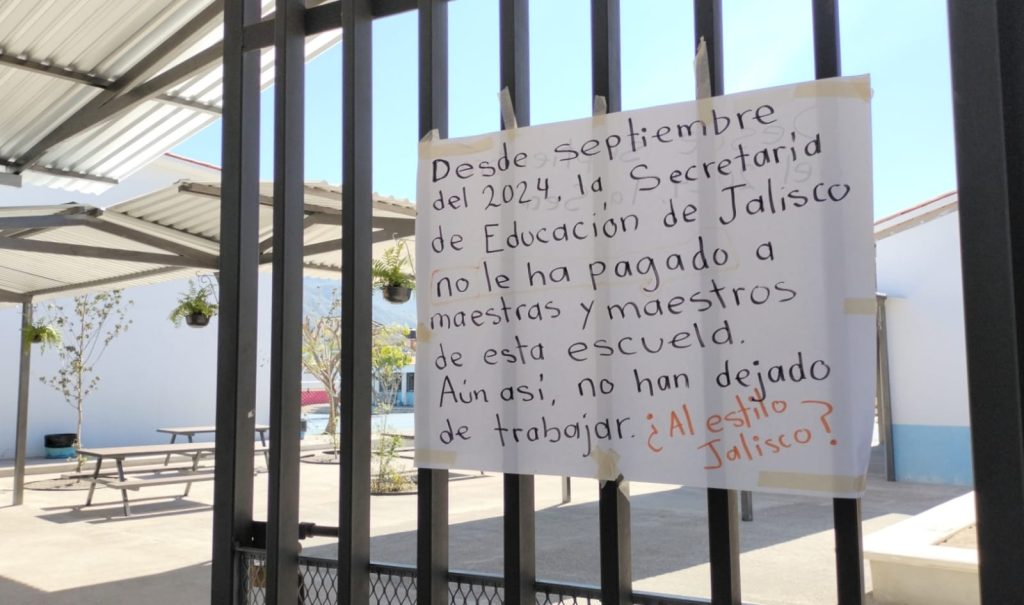 Desde septiembre
del 2024, la Secretaría
de Educación de Jalisco
no le ha pagado a
maestras y maestros
de esta escuela.
Aún así, no han dejado
de trabajar. ¿Al estilo
Jalisco?